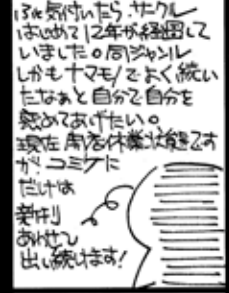 ふと気付いたら、サークル
はじめて12年が経過して
いました。同ジャンル
しかもナマモノでよく続い
たなあと自分で自分を
慰めてあげたい。
現在開店休業状態です
が、コミケに
だけは
新刊
あわせて
出し続けます!